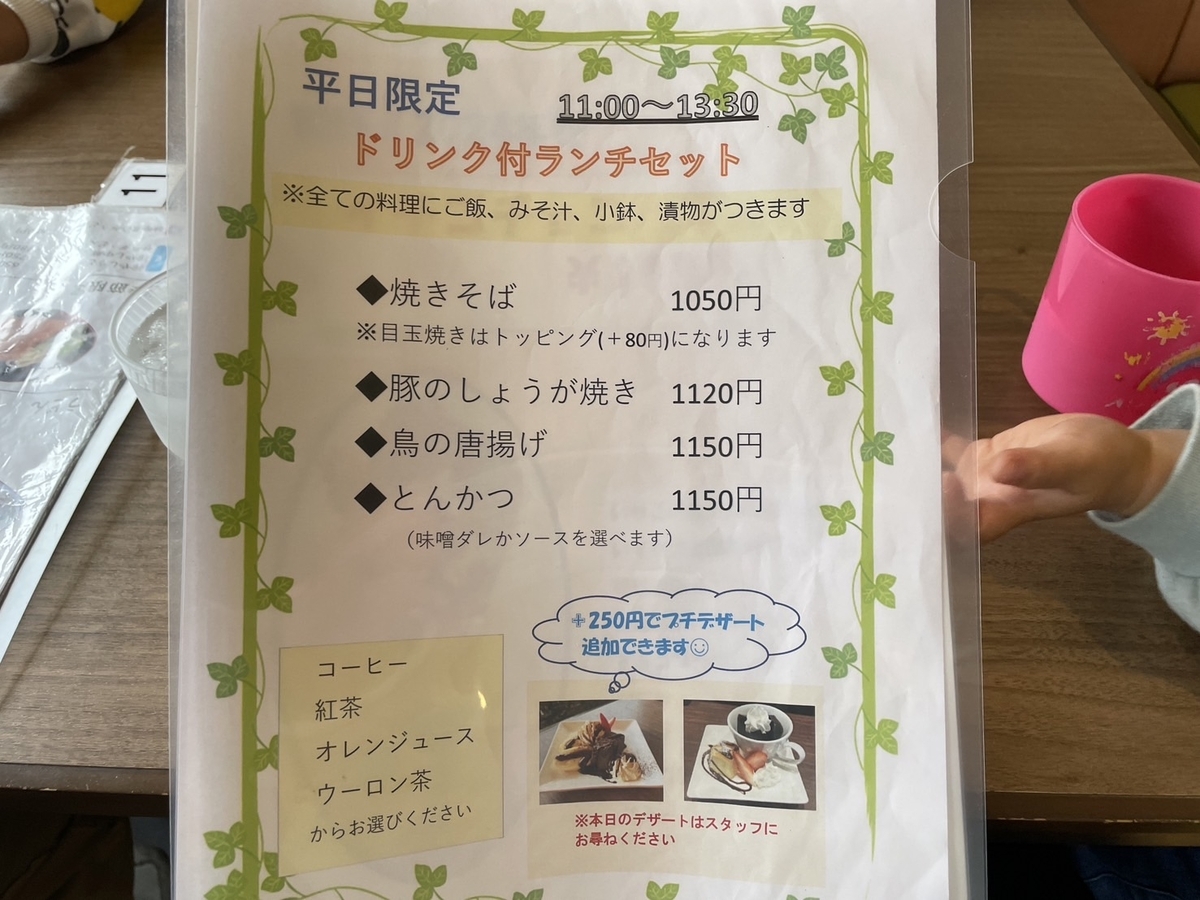 平日限定
11:00～13:30
ドリンク付ランチセット
※全ての料理にご飯、みそ汁、小鉢、漬物がつきます
◆焼きそば 1050円
※目玉焼きはトッピング(＋80円)になります
◆豚のしょうが焼き 1120円
◆鳥の唐揚げ 1150円
◆とんかつ 1150円
（味噌ダレかソースを選べます）
＋250円でプチデザート
追加できます☺
コーヒー
紅茶
オレンジュース
ウーロン茶
からお選びください
※本日のデザートはスタッフに
お尋ねください
11